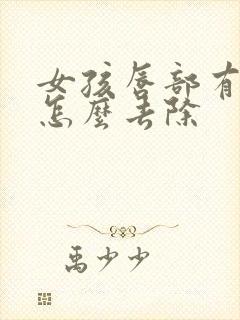 女孩唇部有
怎麼去除
禹少少